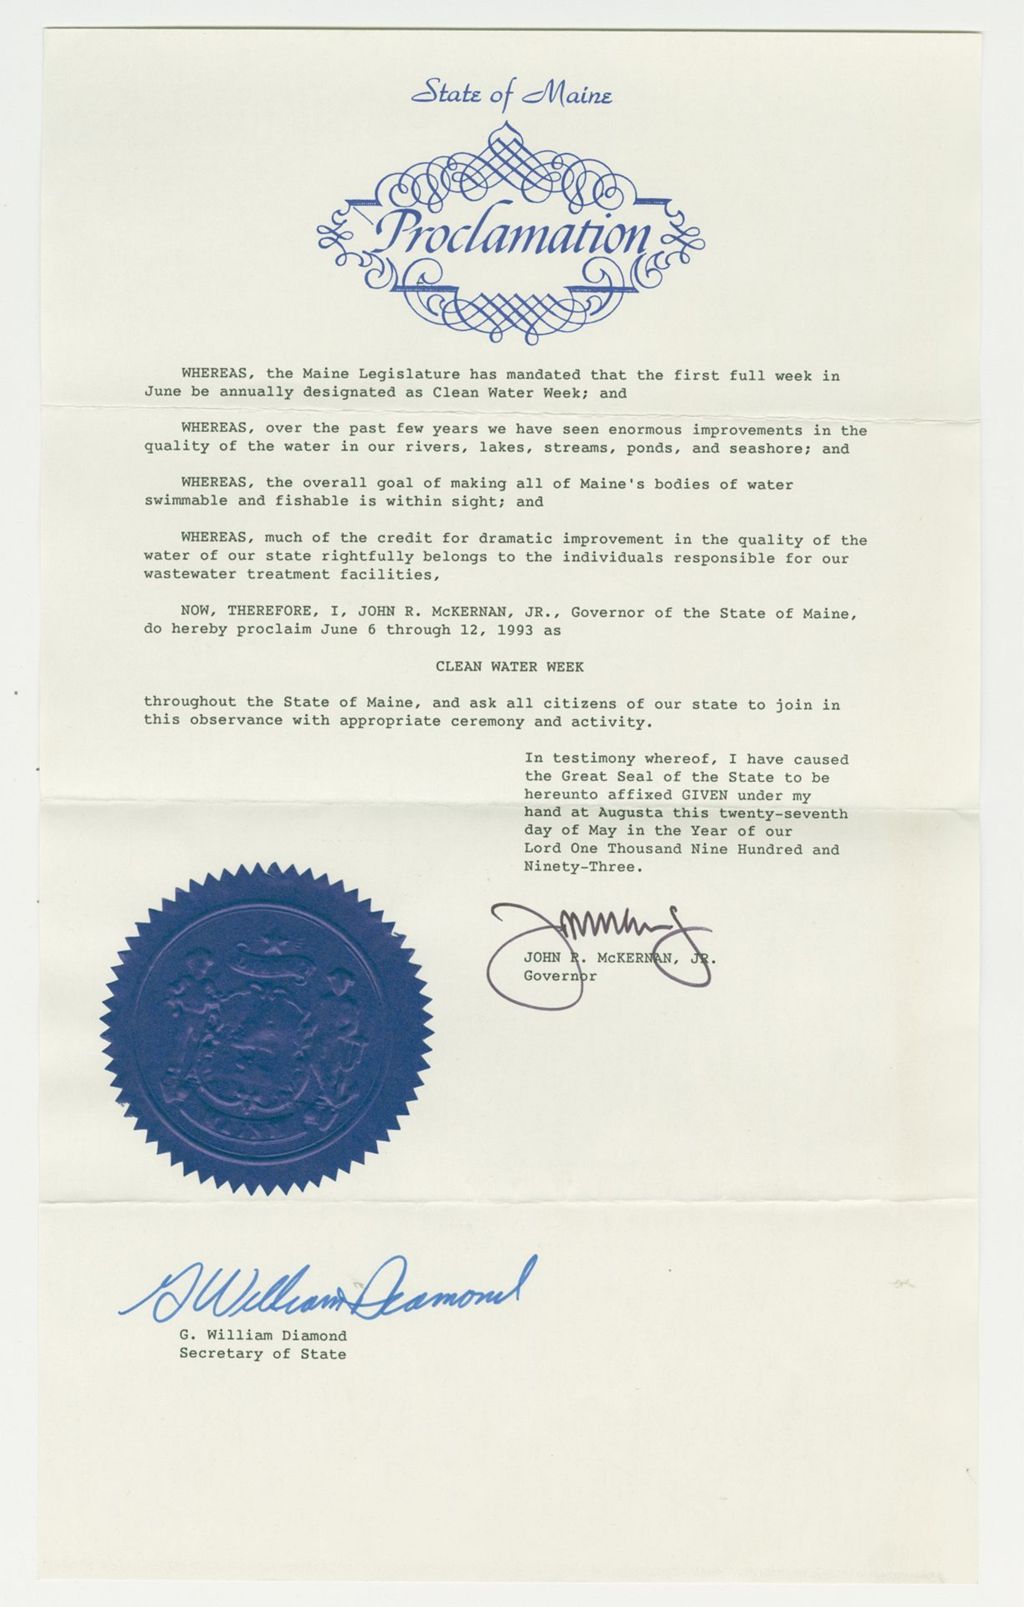 State of Maine
Proclamation
WHEREAS, the Maine Legislature has mandated that the first full week in
June be annually designated as Clean Water Week; and
WHEREAS, over the past few years we have seen enormous improvements in the
quality of the water in our rivers, lakes, streams, ponds, and seashore; and
WHEREAS, the overall goal of making all of Maine's bodies of water
swimmable and fishable is within sight; and
WHEREAS, much of the credit for dramatic improvement in the quality of the
water of our state rightfully belongs to the individuals responsible for our
wastewater treatment facilities,
NOW, THEREFORE, I, JOHN R. McKERNAN, JR., Governor of the State of Maine,
do hereby proclaim June 6 through 12, 1993 as
CLEAN WATER WEEK
throughout the State of Maine, and ask all citizens of our state to join in
this observance with appropriate ceremony and activity.
In testimony whereof, I have caused
the Great Seal of the State to be
hereunto affixed GIVEN under my
hand at Augusta this twenty-seventh
day of May in the Year of our
Lord One Thousand Nine Hundred and
Ninety-Three.
JOHN R. McKERNAN, JR.
Governor
MAINE
G William Diamond
G. William Diamond
Secretary of State